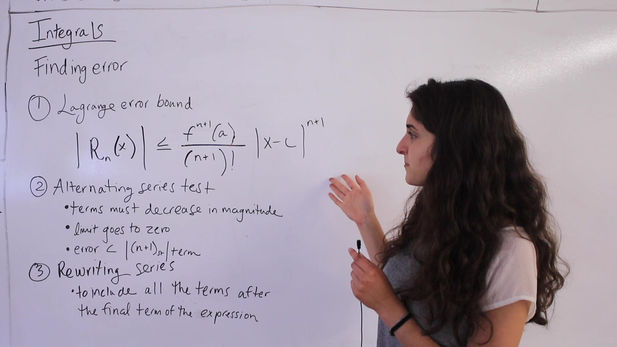 Integrals
Finding error
① Lagrange error bound
|Rₙ(x)| ≤ fⁿ⁺¹(a)/(n+1)! |x-c|ⁿ⁺¹
② Alternating series test
• terms must decrease in magnitude
• limit goes to zero
• error < |(n+1)ₐ| term
③ Rewriting series
• to include all the terms after
the final term of the expression